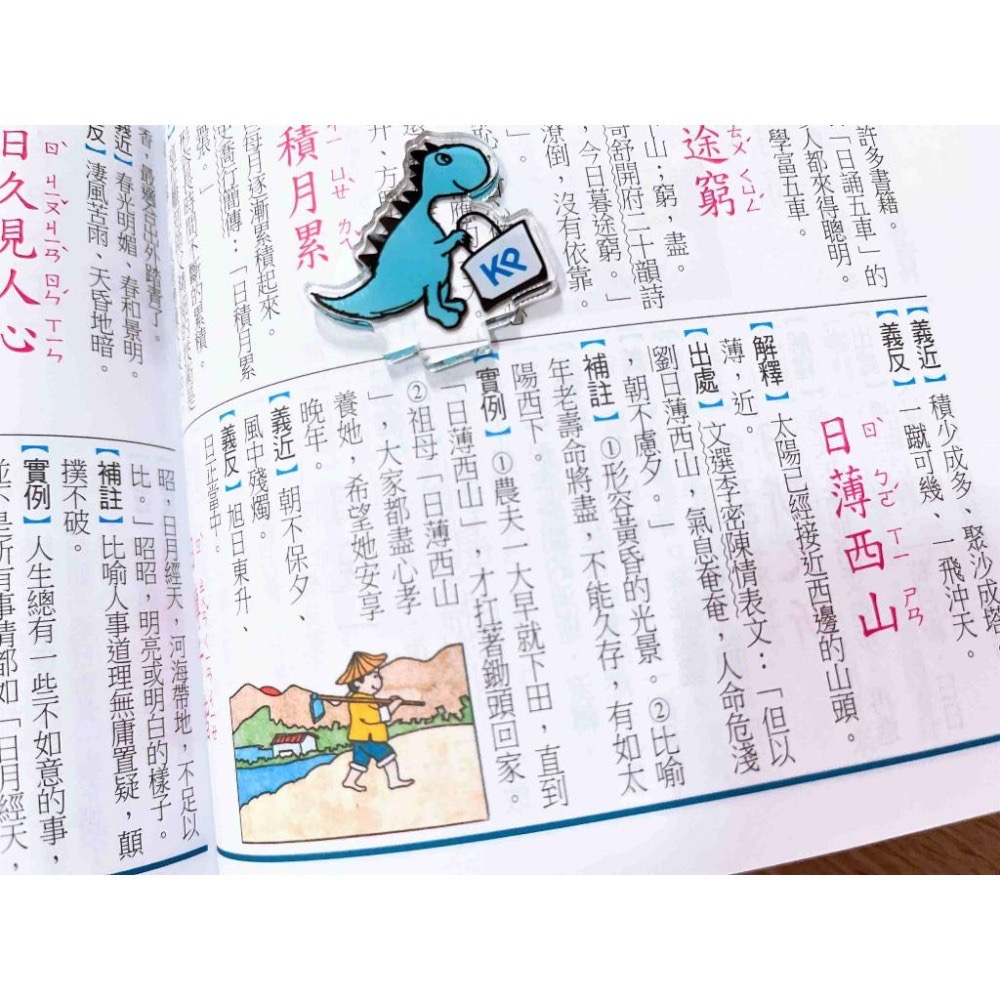 許多書籍。
「日誦五車」的
人都來得聰明。
學富五車。
途窮
ㄊㄨˊ ㄑㄩㄥˊ
山;窮,盡。
哥舒開府二十韻詩
,今日暮途窮。」
潦倒,沒有依靠。
積月累
ㄐㄧ ㄩㄝˋ ㄌㄟˇ
每日逐漸累積起來。
喬行簡傳:「日積月累
【義近】積少成多、聚沙成塔
【義反】一蹴可幾、一飛沖天。
日薄西山
ㄖˋ ㄅㄛˊ ㄒㄧ ㄕㄢ
【解釋】太陽已經接近西邊的山頭。
薄,近。
【出處】文選李密陳情表文:「但以
劉日薄西山,氣息奄奄,人命危淺
,朝不慮夕。」
【補註】①形容黃昏的光景。②比喻
年老壽命將盡,不能久存,有如太
陽西下。
【實例】①農夫一大早就下田,直到
「日薄西山」,才扛著鋤頭回家。
②祖母「日薄西山
」,大家都盡心孝
養她,希望她安享
晚年。
【義近】朝不保夕、
風中殘燭。
【義反】旭日東升、
日正當中。
KP
【義近】春光明媚、春和景明。
反】淒風苦雨、天昏地暗。
日久見人心
ㄖˋ ㄐㄧㄡˇ ㄐㄧㄢˋ ㄖㄣˊ ㄒㄧㄣ
昭,日月經天,河海帶地,不足以
比。」昭昭,明亮或明白的樣子。
【補註】比喻人事道理無庸置疑,顛
撲不破。
【實例】人生總有一些不如意的事,
並不是所有事情都如「日月經天,